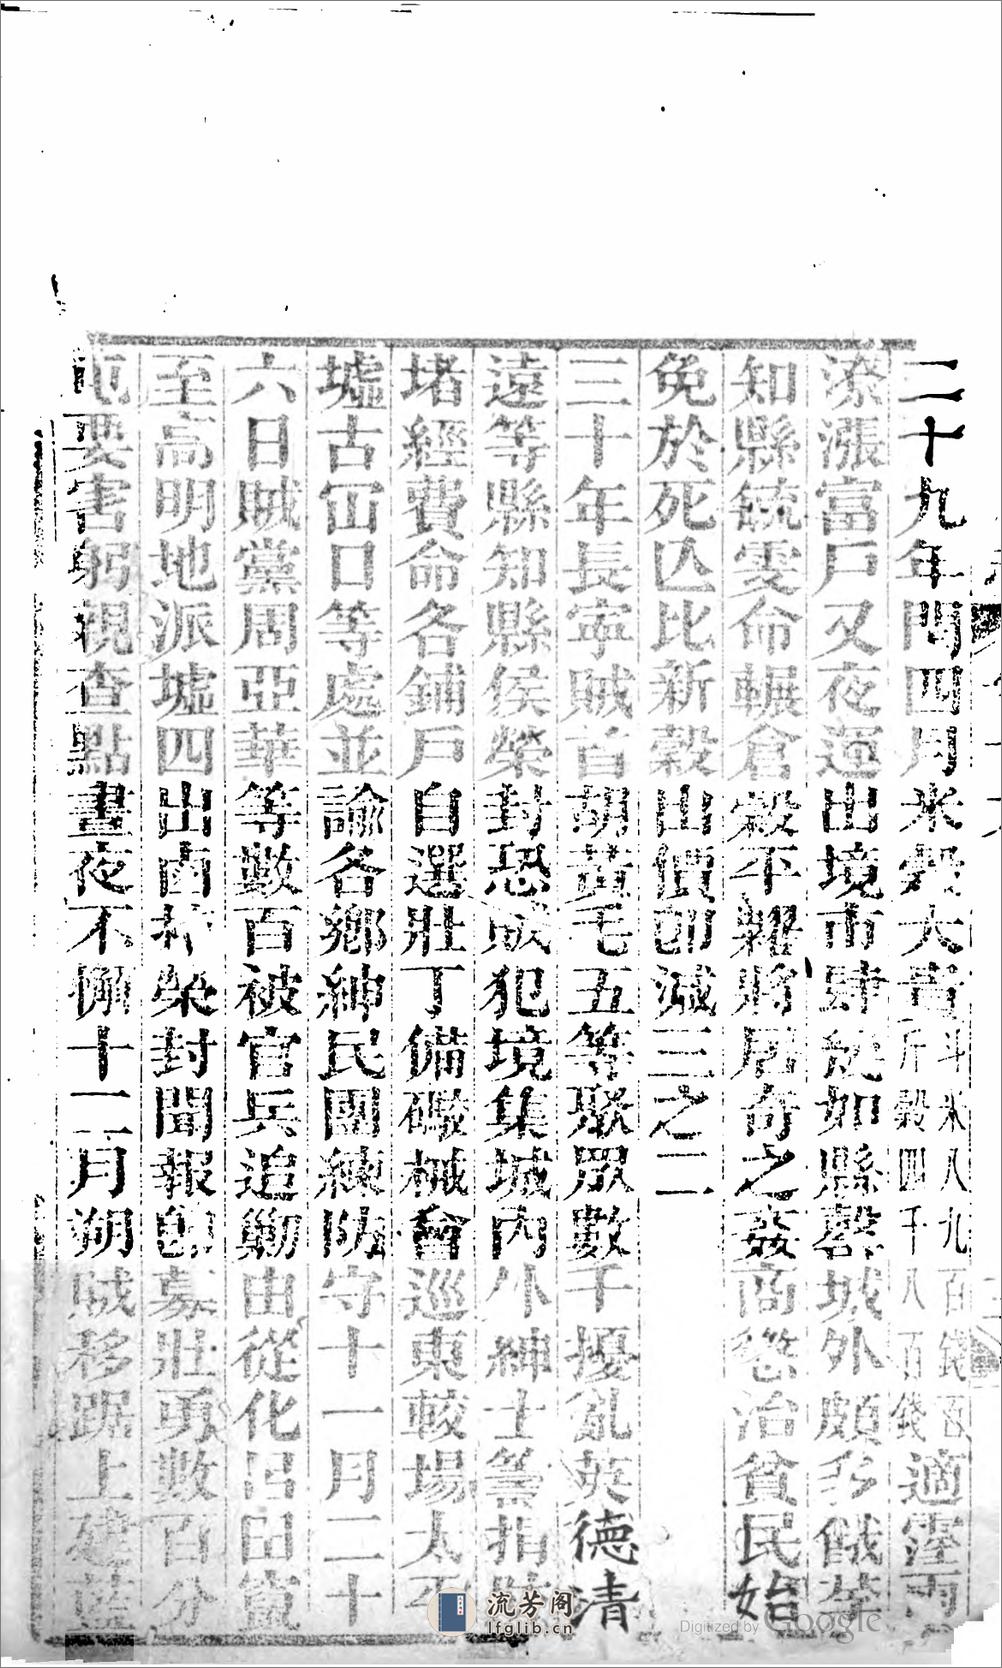 二十九年閏四月米穀大貴斗米八九百錢百斤穀四千八百錢適霪雨
潦漲富戶又夜運出境市肆如縣罄城外頗多餓莩
知縣毓雯命輾倉穀平糶將居奇之姦商懲治貧民始
免於死亾比新穀出價卽減三之二
三十年長寧賊首胡黃毛五等聚眾數千擾亂英德清
遠等縣知縣侯榮封恐賊犯境集城內外紳士籌捐
堵經費命各鋪戶自選壯丁備礮械會巡東較場太平
墟古冚口等處並諭各鄉紳民團練防守十一月二十
六日賊黨周亞華等數百被官兵追勦由從化呂田竄
至高明地派墟四出鹵掠榮封聞報卽募壯勇數百分
屯要害躬親查點晝夜不懈十二月朔賊移踞上建
流芳阁
lfglib.cn
Digitized by Google